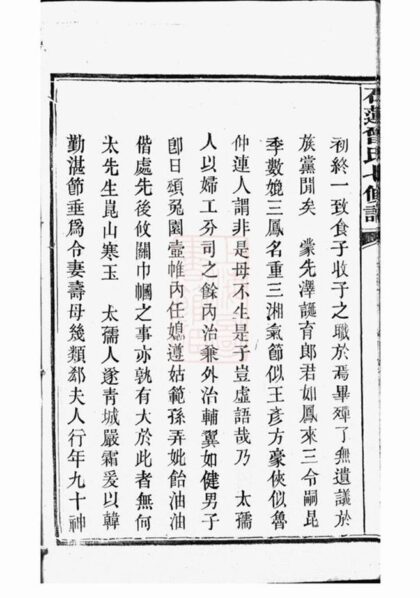 石蓮曾氏七修譜
初終一致食子收子之職於焉畢殫了無遺議於
族黨閒矣 蒙先澤誕育郎君如鳳來三令嗣昆
季數媲三鳳名重三湘氣節似王彥方豪俠似魯
仲連人謂非是母不生是子豈虛語哉乃 太孺
人以婦工分司之餘內治兼外治輔翼如健男子
卽日頌兎園壼帷內任媳遵姑範孫弄妣飴油油
偕處先後攸關巾幗之事亦孰有大於此者無何
太先生崑山寒玉 太孺人遂青城嚴霜爰以韓
勤湛節垂爲令妻壽母幾類郄夫人行年九十神